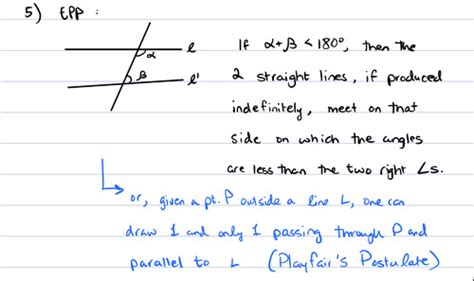 5) EPP :
l
α
β
l'
If α+β < 180°, then the
2 straight lines, if produced
indefinitely, meet on that
side on which the angles
are less than the two right ∠s.
or, given a pt. P outside a line L, one can
draw 1 and only 1 passing through P and
parallel to L (Playfair's Postulate)